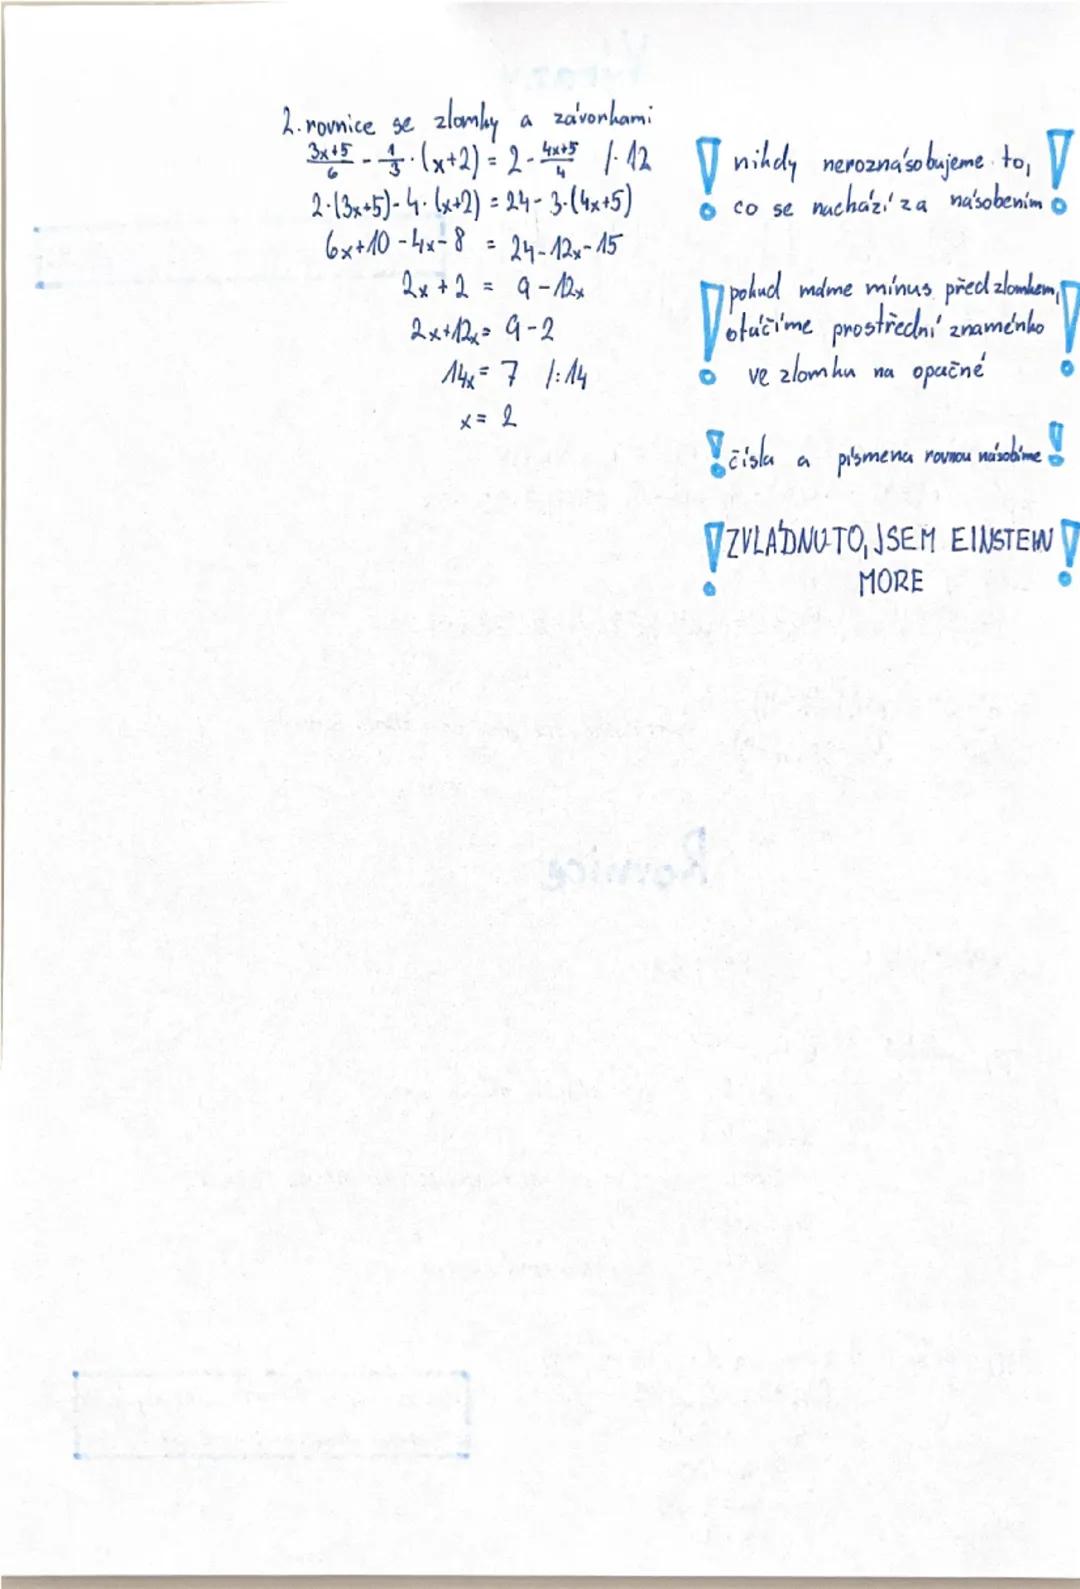 2. rovnice se zlomky a závorkami
3x+5/6 - 1/3 · (x+2) = 2 - 4x+5/4 /· 12
2·(3x+5)-4·(x+2) = 24-3·(4x+5)
6x+10-4x-8 = 24-12x-15
2x+2 = 9-12x
2x+12x= 9-2
14x= 7 /:14
x= 2
! nikdy neroznásobujeme to, !
co se nachází za násobením
! pokud máme mínus před zlomkem, !
otáčíme prostřední znaménko
ve zlomku na opačné
! čísla a písmena rovnou násobíme !
! ZVLÁDNU TO, JSEM EINSTEIN !
MORE